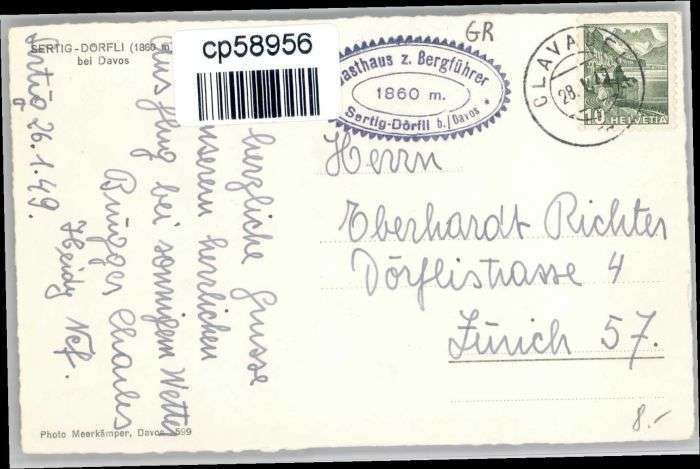 SERTIG-DÖRFLI (1860 m
bei Davos
cp58956
GR
Gasthaus z. Bergführer
1860 m.
Sertig-Dörfli b./Davos
CLAVA
28.
10 HELVETIA
Herrn
Eberhardt Richter
Dörflistrasse 4
Zürich 57.
herzliche Grüsse
unserem herrlichen
Ausflug bei sonnigem Wetter
Charles
Heidy Nef.
Sertig 26.1.49.
Photo Meerkämper, Davos 599
8.-